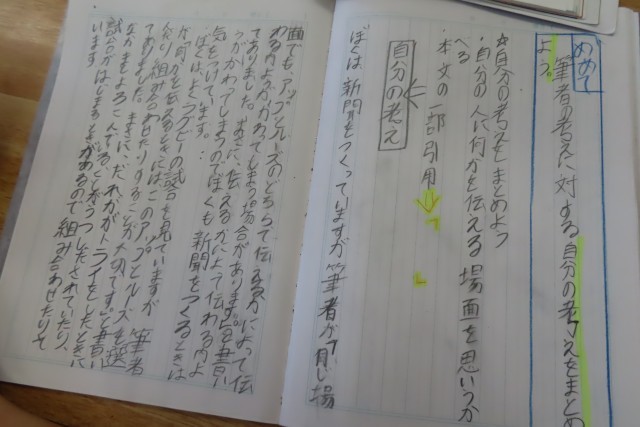 めあて
筆者の考えに対する自分の考えをまとめ
よう。
☆自分の考えをまとめよう
・自分の人に何かを伝える場面を思いうか
べる
・本文の一部引用→「　」
自分の考え
ぼくは、新聞をつくっていますが筆者が「同じ場
面でも、アップとルーズのどちらで伝えるかによって伝
わる内ようがかわってしまう場合があります。」と書い
てありました。たしかに、伝えるかによって伝わる内よ
うがかわってしまうのでぼくも新聞をつくるときは
気をつけています。
ぼくは、よくラグビーの試合を見ていますが、筆者
が「何かを伝えるときにはこのアップとルーズを選
んだり、組み合わせたりすることが大切です。」と書い
てありました。たしかに、だれかがトライをしたときに
なかまとよろこんでいる
試合がはじまるときがあるので組み合わせたりして
います。